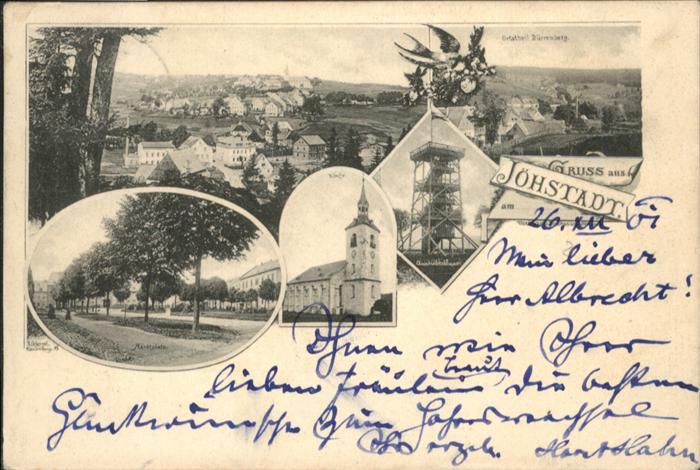 Ortstheil Dürrenberg.
GRUSS aus
JÖHSTADT
am 26. XII 01
Mein lieber
Herr Albrecht!
Kirche.
Aussichtsthurm
Marktplatz.
Ihnen wie Ihrer
lieben Fräulein Braut die besten
Glückwünsche zum Jahreswechsel
Ihr ergeb.